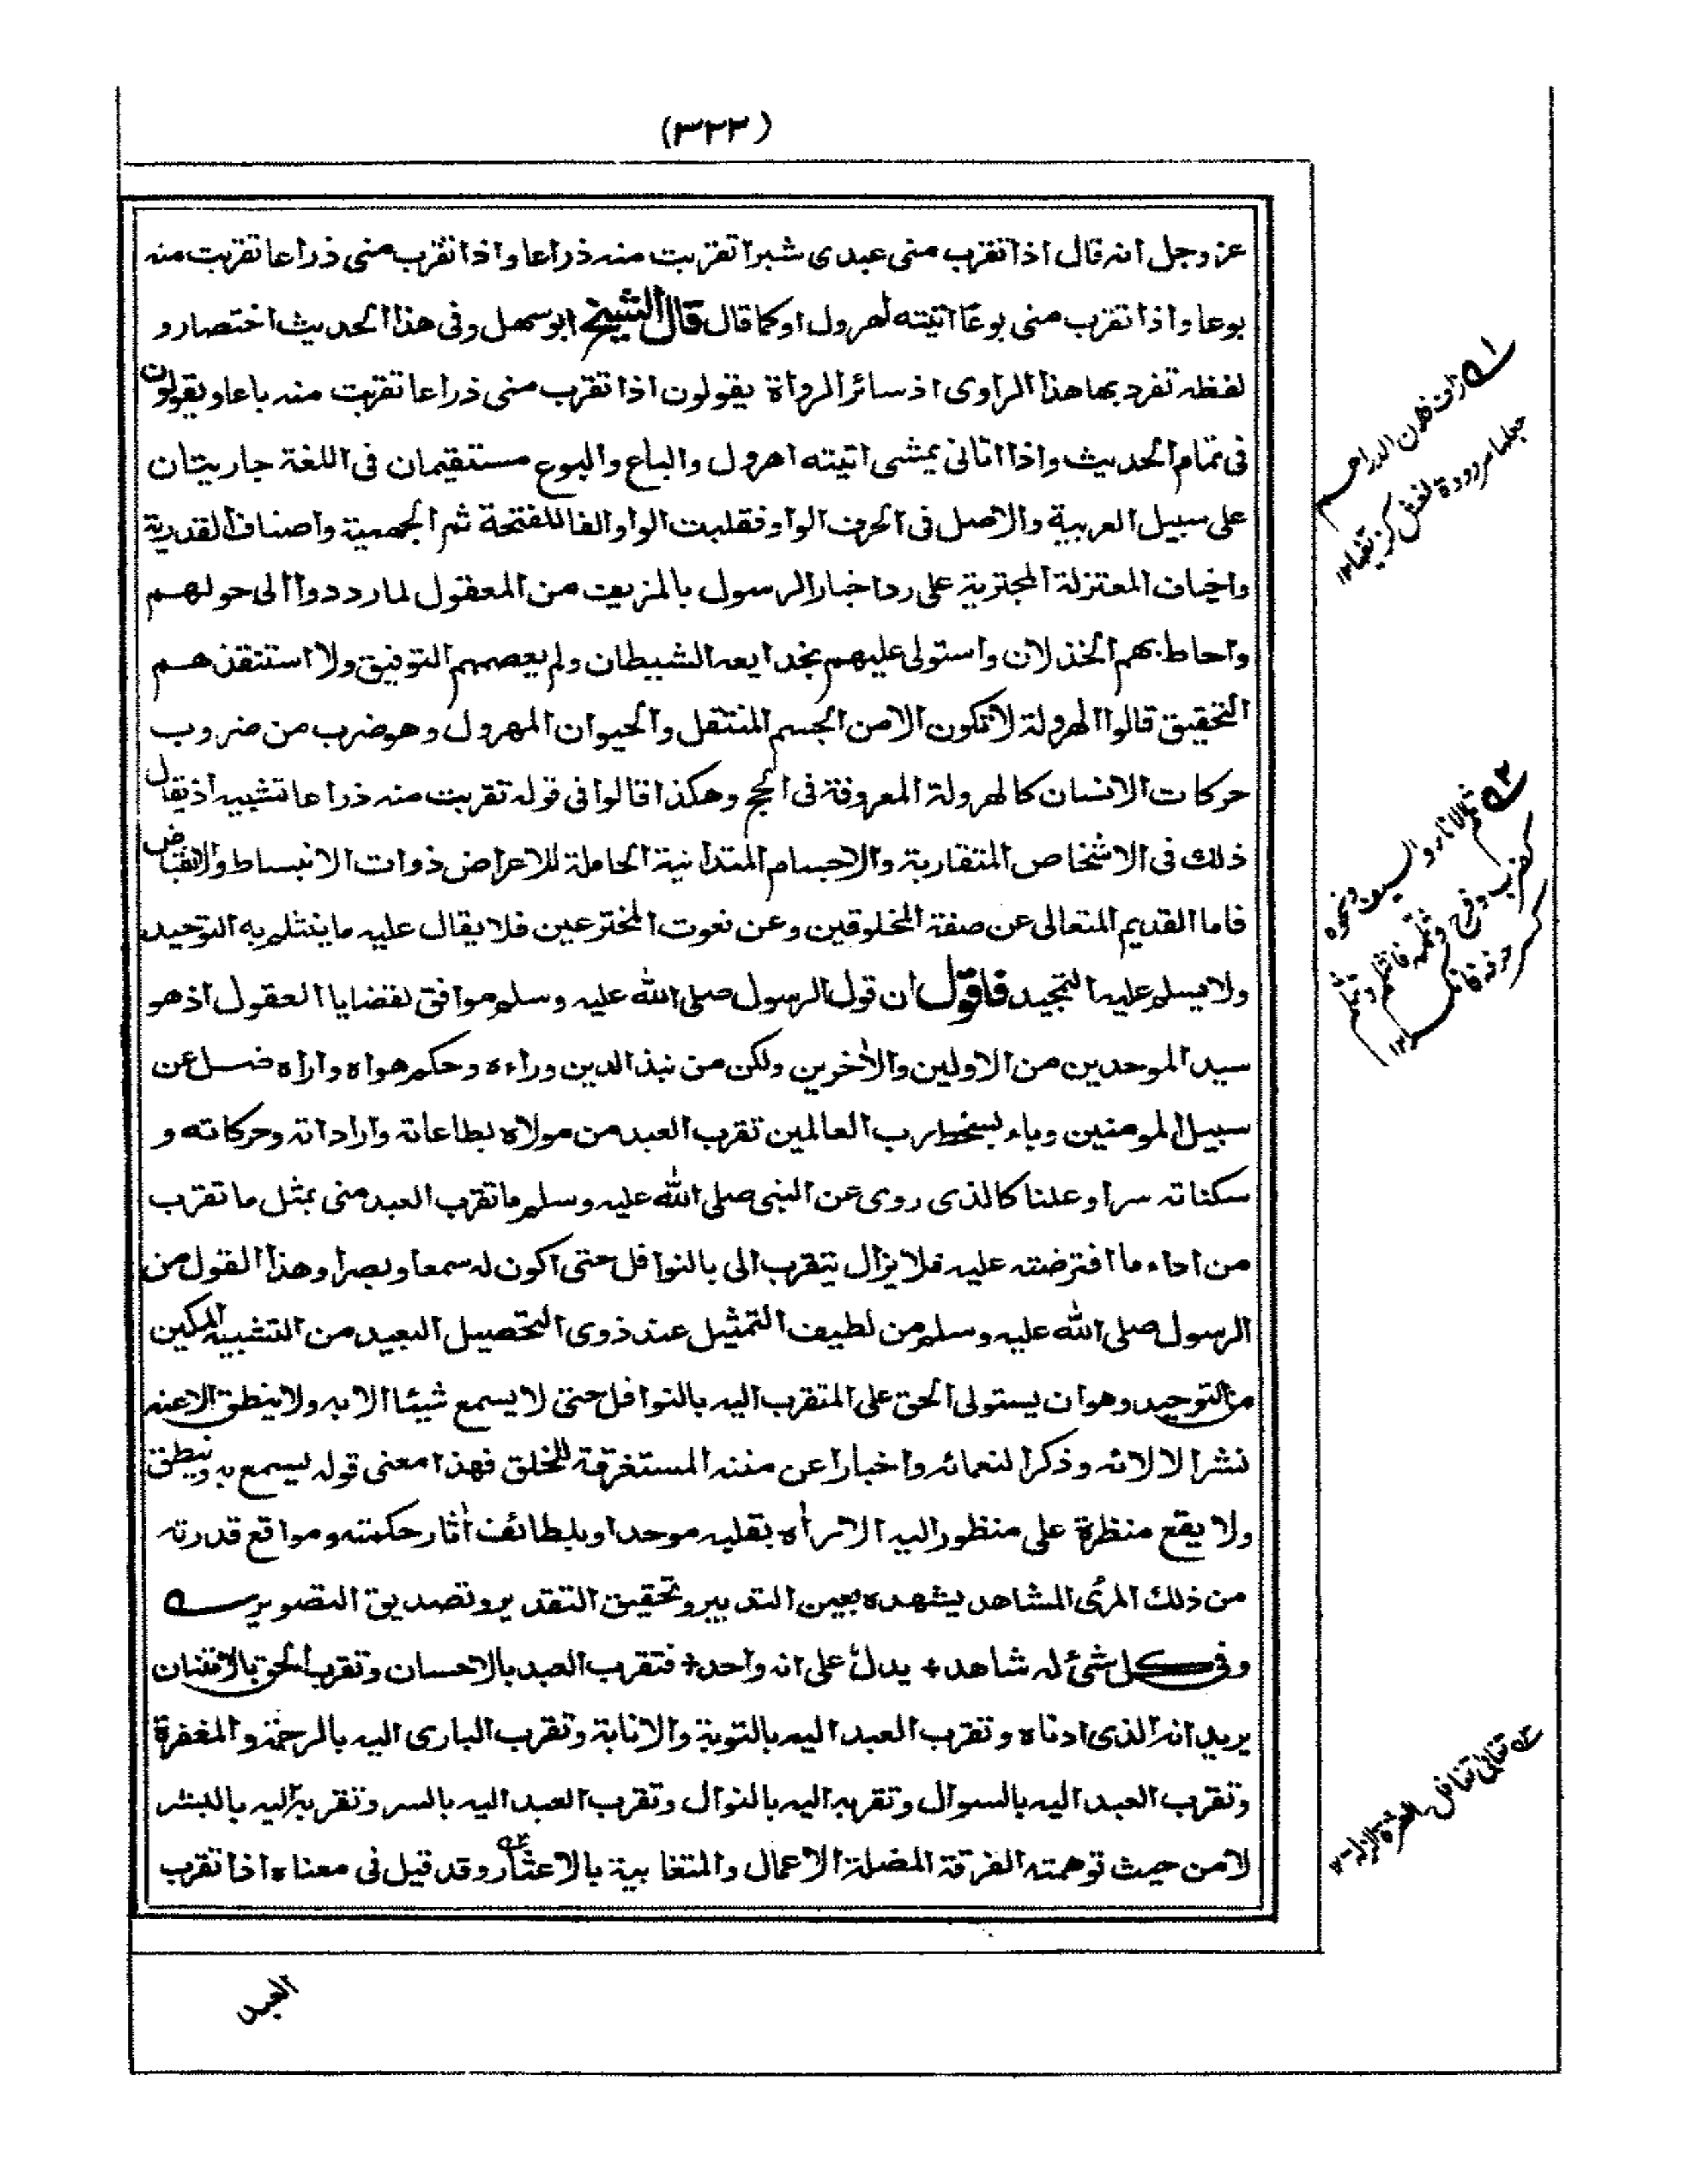 (٣٢٣)
عز وجل انه قال اذا تقرب منى عبدى شبرا تقربت منه ذراعا واذا تقرب منى ذراعا تقربت منه
بوعا واذا تقرب منى بوعا اتيته اهرول او كما قال قال الشيخ ابو سهل وفى هذا الحديث اختصار و
لفظه تفرد بها هذا الراوى اذ سائر الرواة يقولون اذا تقرب منى ذراعا تقربت منه باعا ويقولون
فى تمام الحديث واذا اتانى يمشى اتيته اهرول والباع والبوع مستقيمان فى اللغة جاريتان
على سبيل العربية والاصل فى الحرف الواو فقلبت الواو الفا للفتحة ثم الجهمية واصناف القدرية
واخياف المعتزلة المجترية على رد اخبار الرسول بالمزيف من المعقول لما ردوا الى حولهم
واحاط بهم الخذلان واستولى عليهم بخدايعه الشيطان ولم يعصمهم التوفيق ولا استنقذهم
التحقيق قالوا الهرولة لا تكون الا من الجسم المنتقل والحيوان المهرول وهو ضرب من ضروب
حركات الانسان كالهرولة المعروفة فى الحج وهكذا قالوا فى قوله تقربت منه ذراعا تشبيه اذ يقال
ذلك فى الاشخاص المتقاربة والاجسام المتدانية الحاملة للاعراض ذوات الانبساط والانقباض
فاما القديم المتعالى عن صفة المخلوقين وعن نعوت المخترعين فلا يقال عليه ما ينثلم به التوحيد
ولا يسلم عليه التمجيد فاقول ان قول الرسول صلى الله عليه وسلم موافق لقضايا العقول اذ هو
سيد الموحدين من الاولين والأخرين ولكن من نبذ الدين وراءه وحكم هواه واراه ضل عن
سبيل المومنين وباء بسخط رب العالمين تقرب العبد من مولاه بطاعاته واراداته وحركاته و
سكناته سرا وعلنا كالذى روى عن النبى صلى الله عليه وسلم ما تقرب العبد منى بمثل ما تقرب
من اداء ما افترضته عليه فلا يزال يتقرب الى بالنوافل حتى اكون له سمعا وبصرا وهذا القول من
الرسول صلى الله عليه وسلم من لطيف التمثيل عند ذوى التحصيل البعيد من التشبيه المكين
من التوحيد وهو ان يستولى الحق على المتقرب اليه بالنوافل حتى لا يسمع شيئا الا به ولا ينطق الا عنه
نشرا لالائه وذكرا لنعمائه واخبارا عن مننه المستغرقة للخلق فهذا معنى قوله يسمع به وينطق
ولا يقع منظرة على منظور اليه الا راه بقلبه موحدا وبلطائف أثار حكمته ومواقع قدرته
من ذلك المرئى المشاهد يشهده بعين التدبير وتحقيق التقدير وتصديق التصوير ؎
وفى كل شئ له شاهد + يدل على انه واحد + فتقرب العبد بالاحسان وتقرب الحق بالامتنان
يريد انه الذى ادناه وتقرب العبد اليه بالتوبة والانابة وتقرب البارى اليه بالرحمة والمغفرة
وتقرب العبد اليه بالسوال وتقربه اليه بالنوال وتقرب العبد اليه بالسر وتقربه اليه بالبشر
لا من حيث توهمته الفرقة المضلة الاعمال والمتغابية بالاعثار وقد قيل فى معناه اذا تقرب
العبد